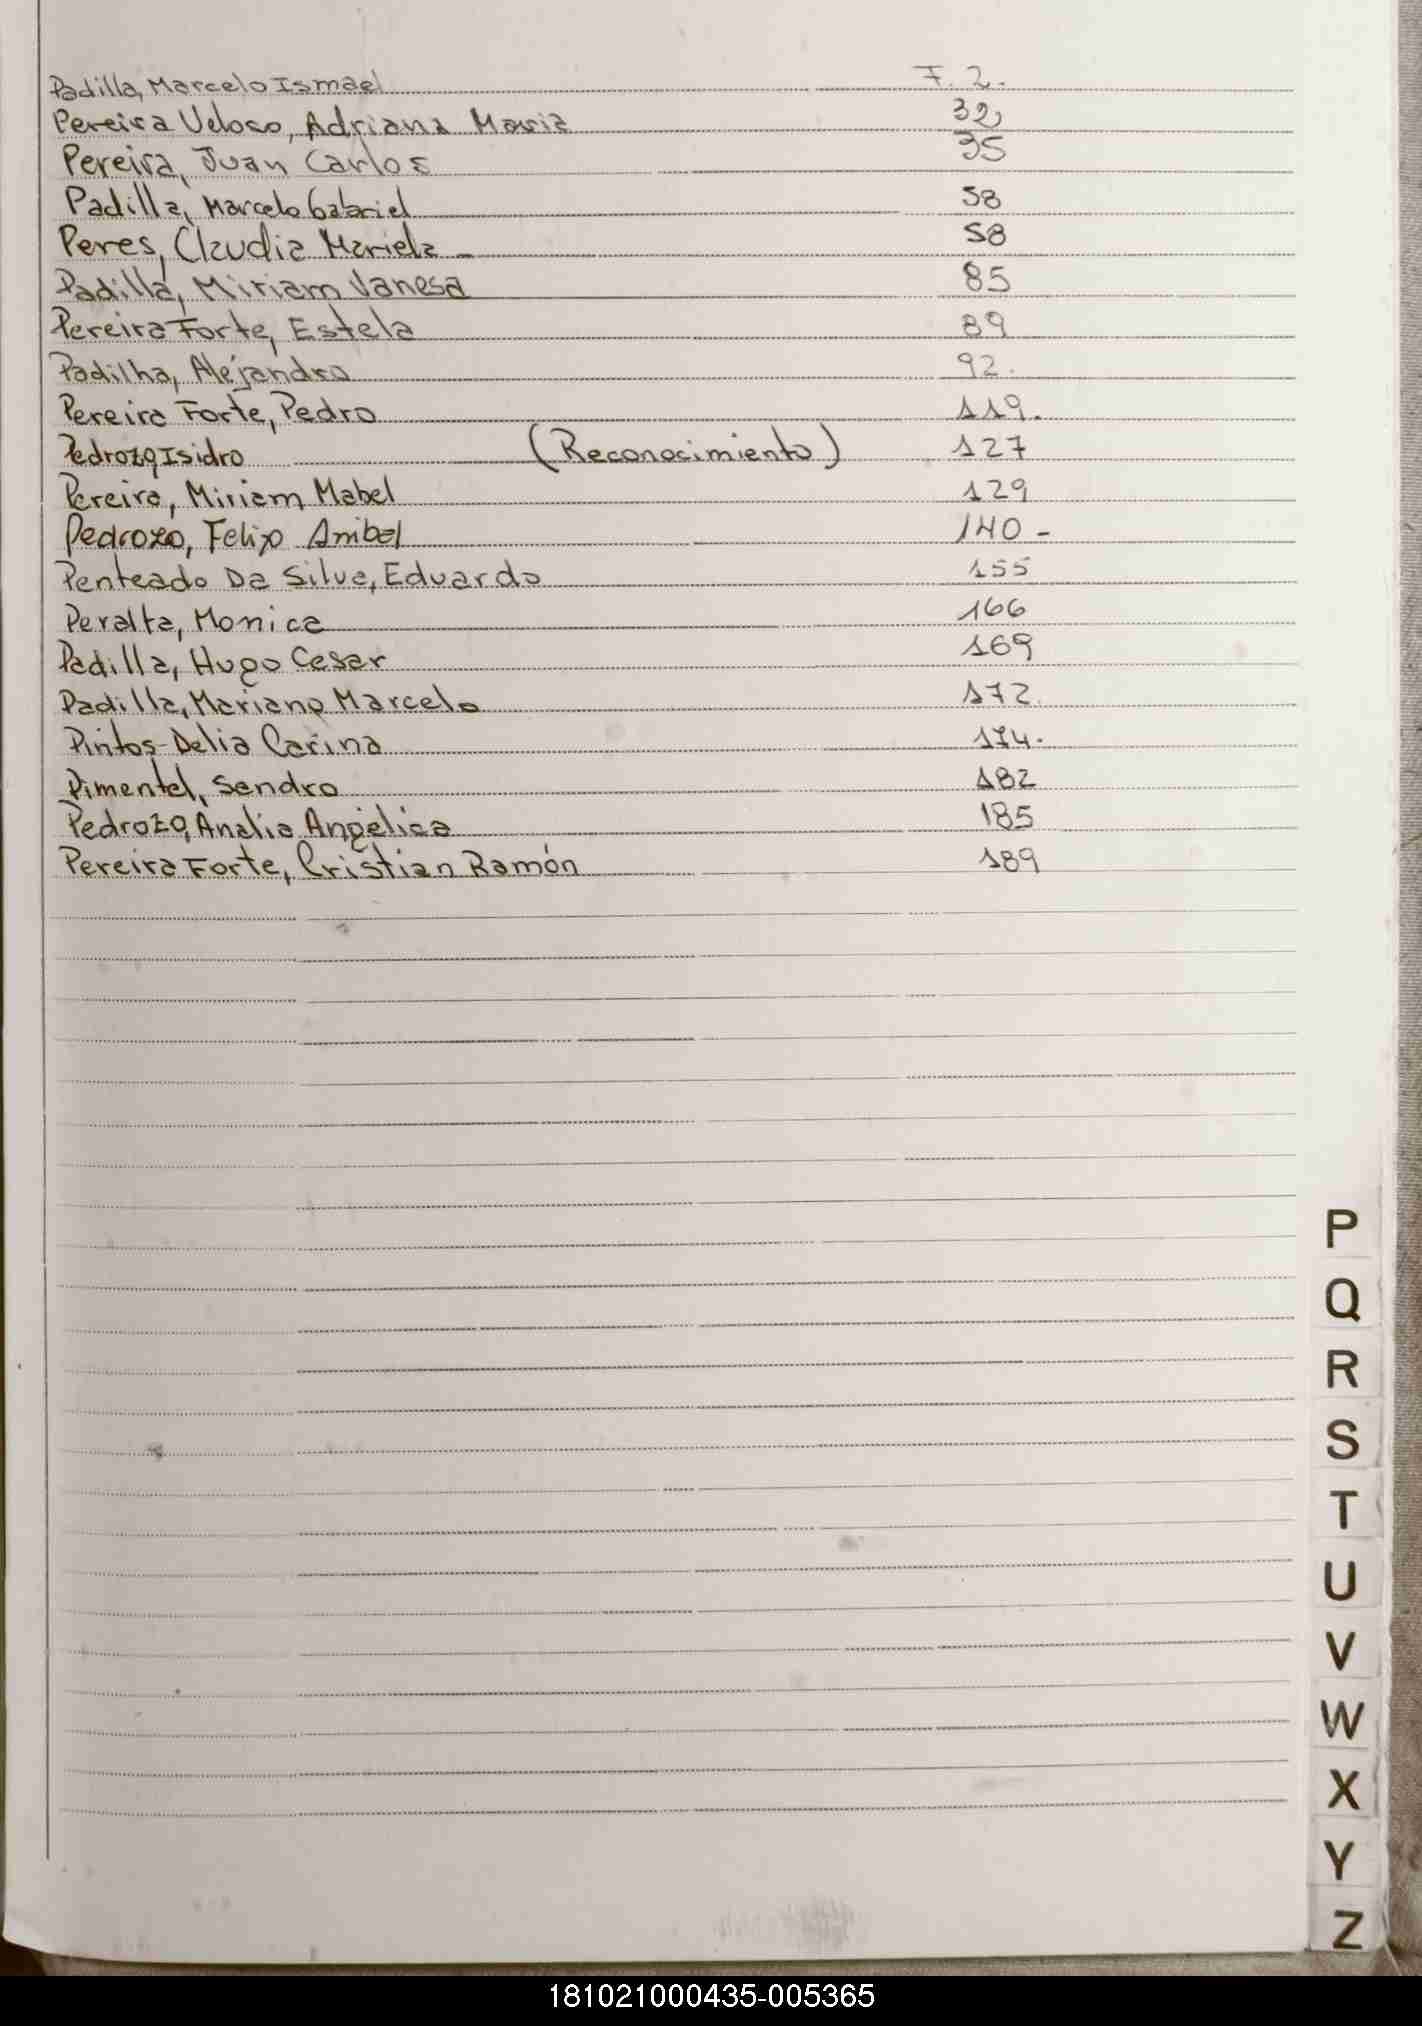 Padilla, Marcelo Ismael F. 2.
Pereira Veloso, Adriana Maria 32
Pereira, Juan Carlos 35
Padilla, Marcelo Gabriel 58
Peres, Claudia Mariela - 58
Padilla, Miriam Vanesa 85
Pereira Forte, Estela 89
Padilha, Alejandro 92.
Pereira Forte, Pedro 119.
Pedrozo Isidro (Reconocimiento) 127
Pereira, Miriam Mabel 129
Pedrozo, Felix Anibal 140-
Penteado Da Silva, Eduardo 155
Peralta, Monica 166
Padilla, Hugo Cesar 169
Padilla, Mariano Marcelo 172.
Pintos-Delia Carina 174.
Pimentel, Sandro 182
Pedrozo, Analia Angélica 185
Pereira Forte, Cristian Ramón 189
P
Q
R
S
T
U
V
W
X
Y
Z
181021000435-005365